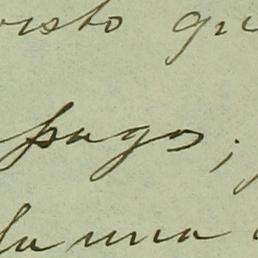 visto qu
pago;
la una